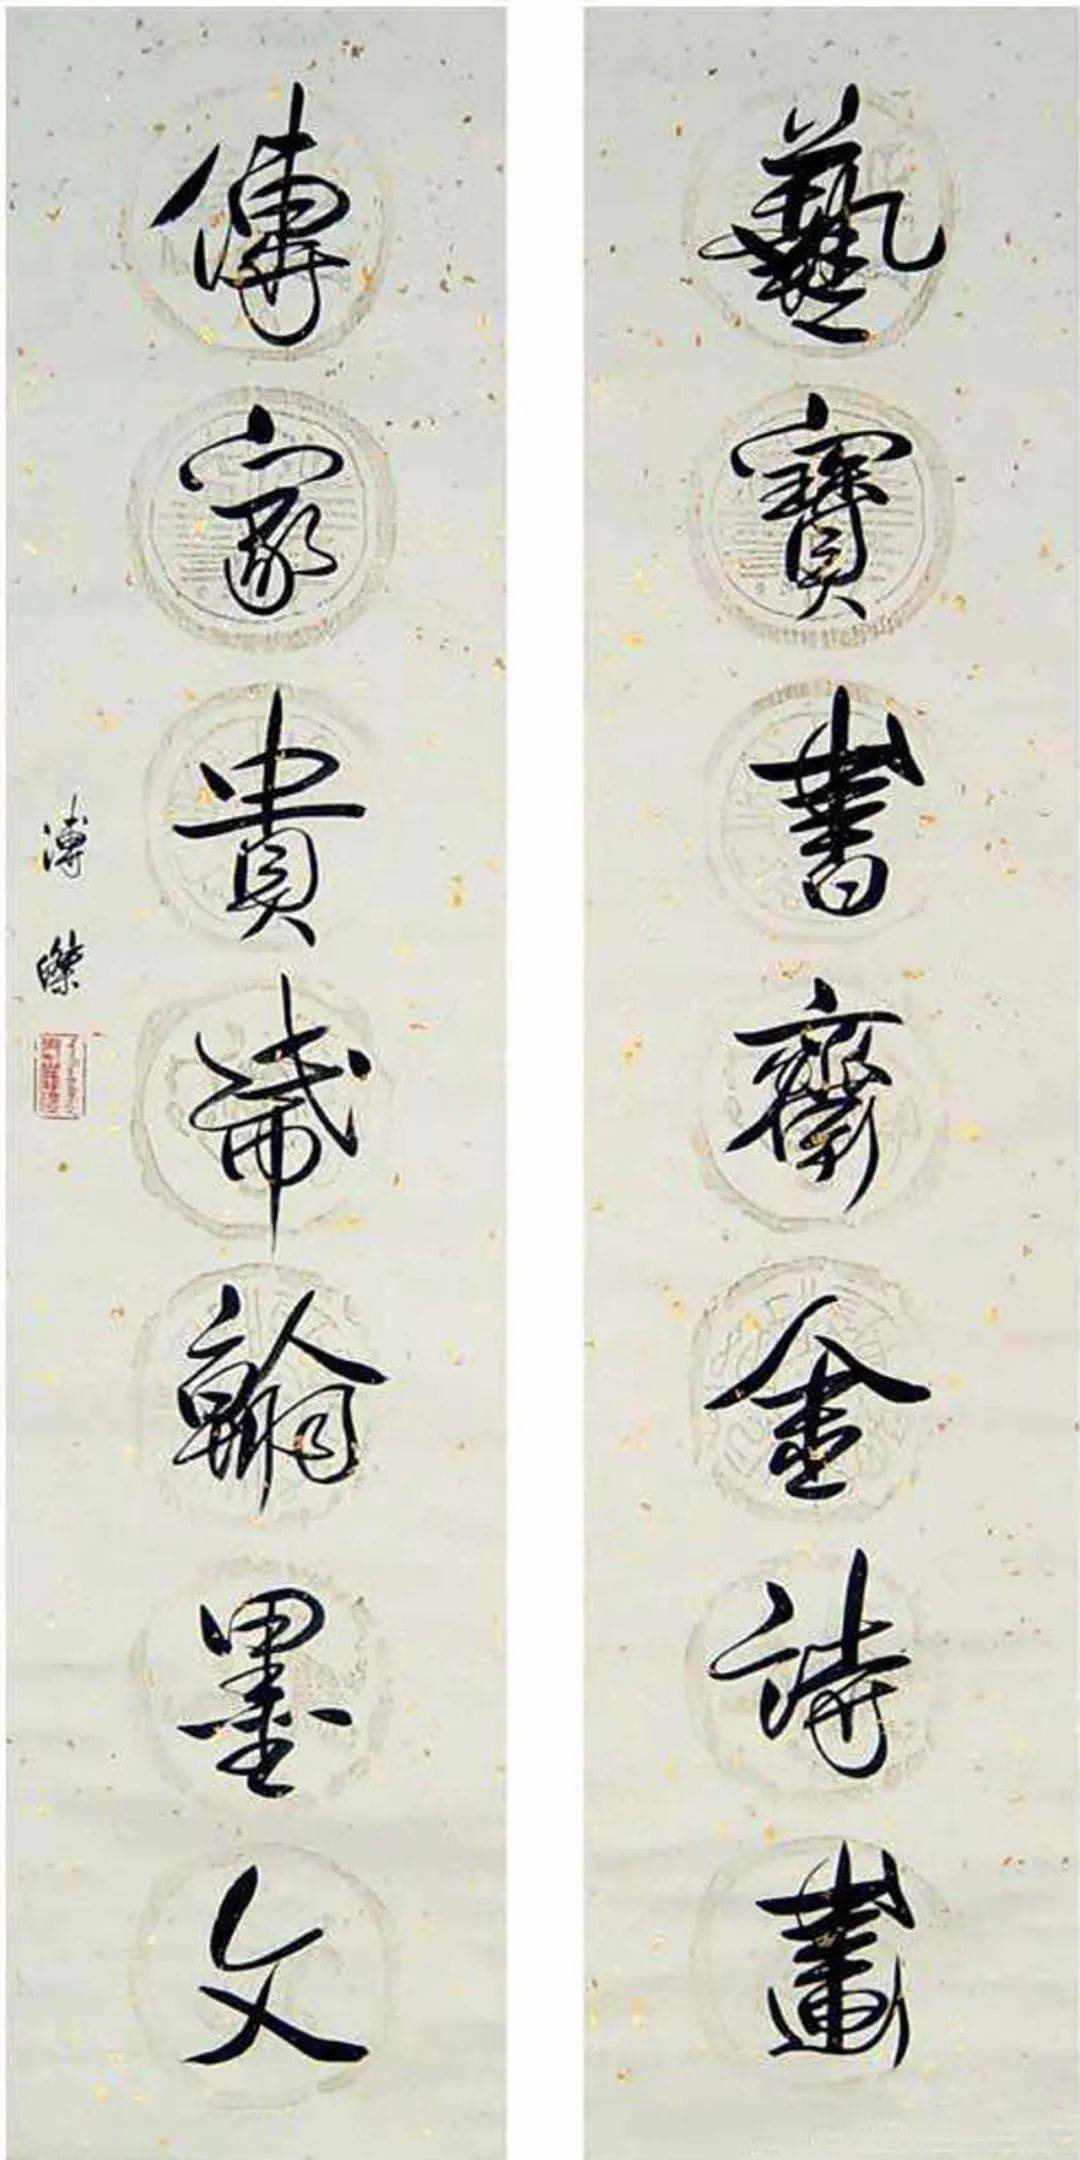 藝寶書齋金詩畫
傳家貴徳翰墨文
溥傑